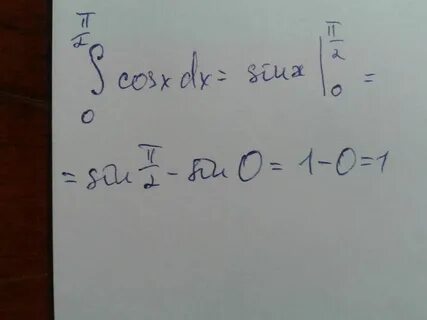 ∫₀^(π/2) cosx dx = sinx |₀^(π/2) =
= sin π/2 - sin 0 = 1-0=1